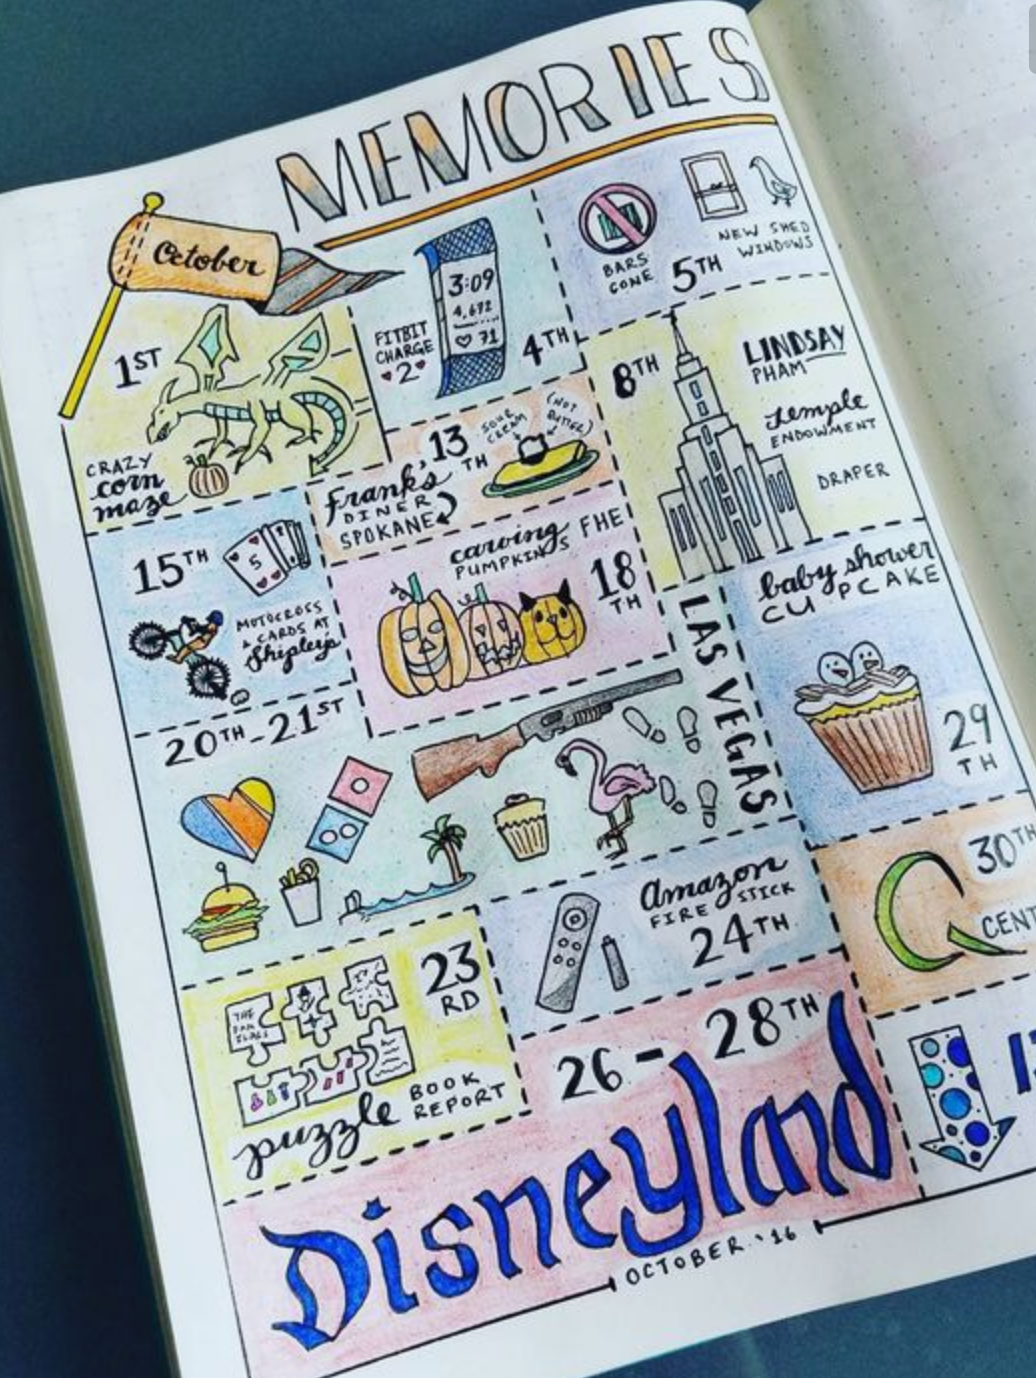 MEMORIES
October
1ST
CRAZY
corn
maze
FITBIT
CHARGE
2
3:09
4,672
71
4TH
BARS
GONE
5TH
NEW SHED
WINDOWS
8TH
LINDSAY
PHAM
temple
ENDOWMENT
DRAPER
13
TH
SOUR
CREAM
(NOT
BUTTER)
Frank's
DINER
SPOKANE
15TH
5
MOTOCROSS
& CARDS AT
Shipleys
carving
PUMPKINS FHE
18
TH
20TH-21ST
LAS VEGAS
baby shower
CUPCAKE
29
TH
23
RD
THE
puzzle
BOOK
REPORT
Amazon
FIRE STICK
24TH
30TH
CENT
26-28TH
Disneyland
OCTOBER '16